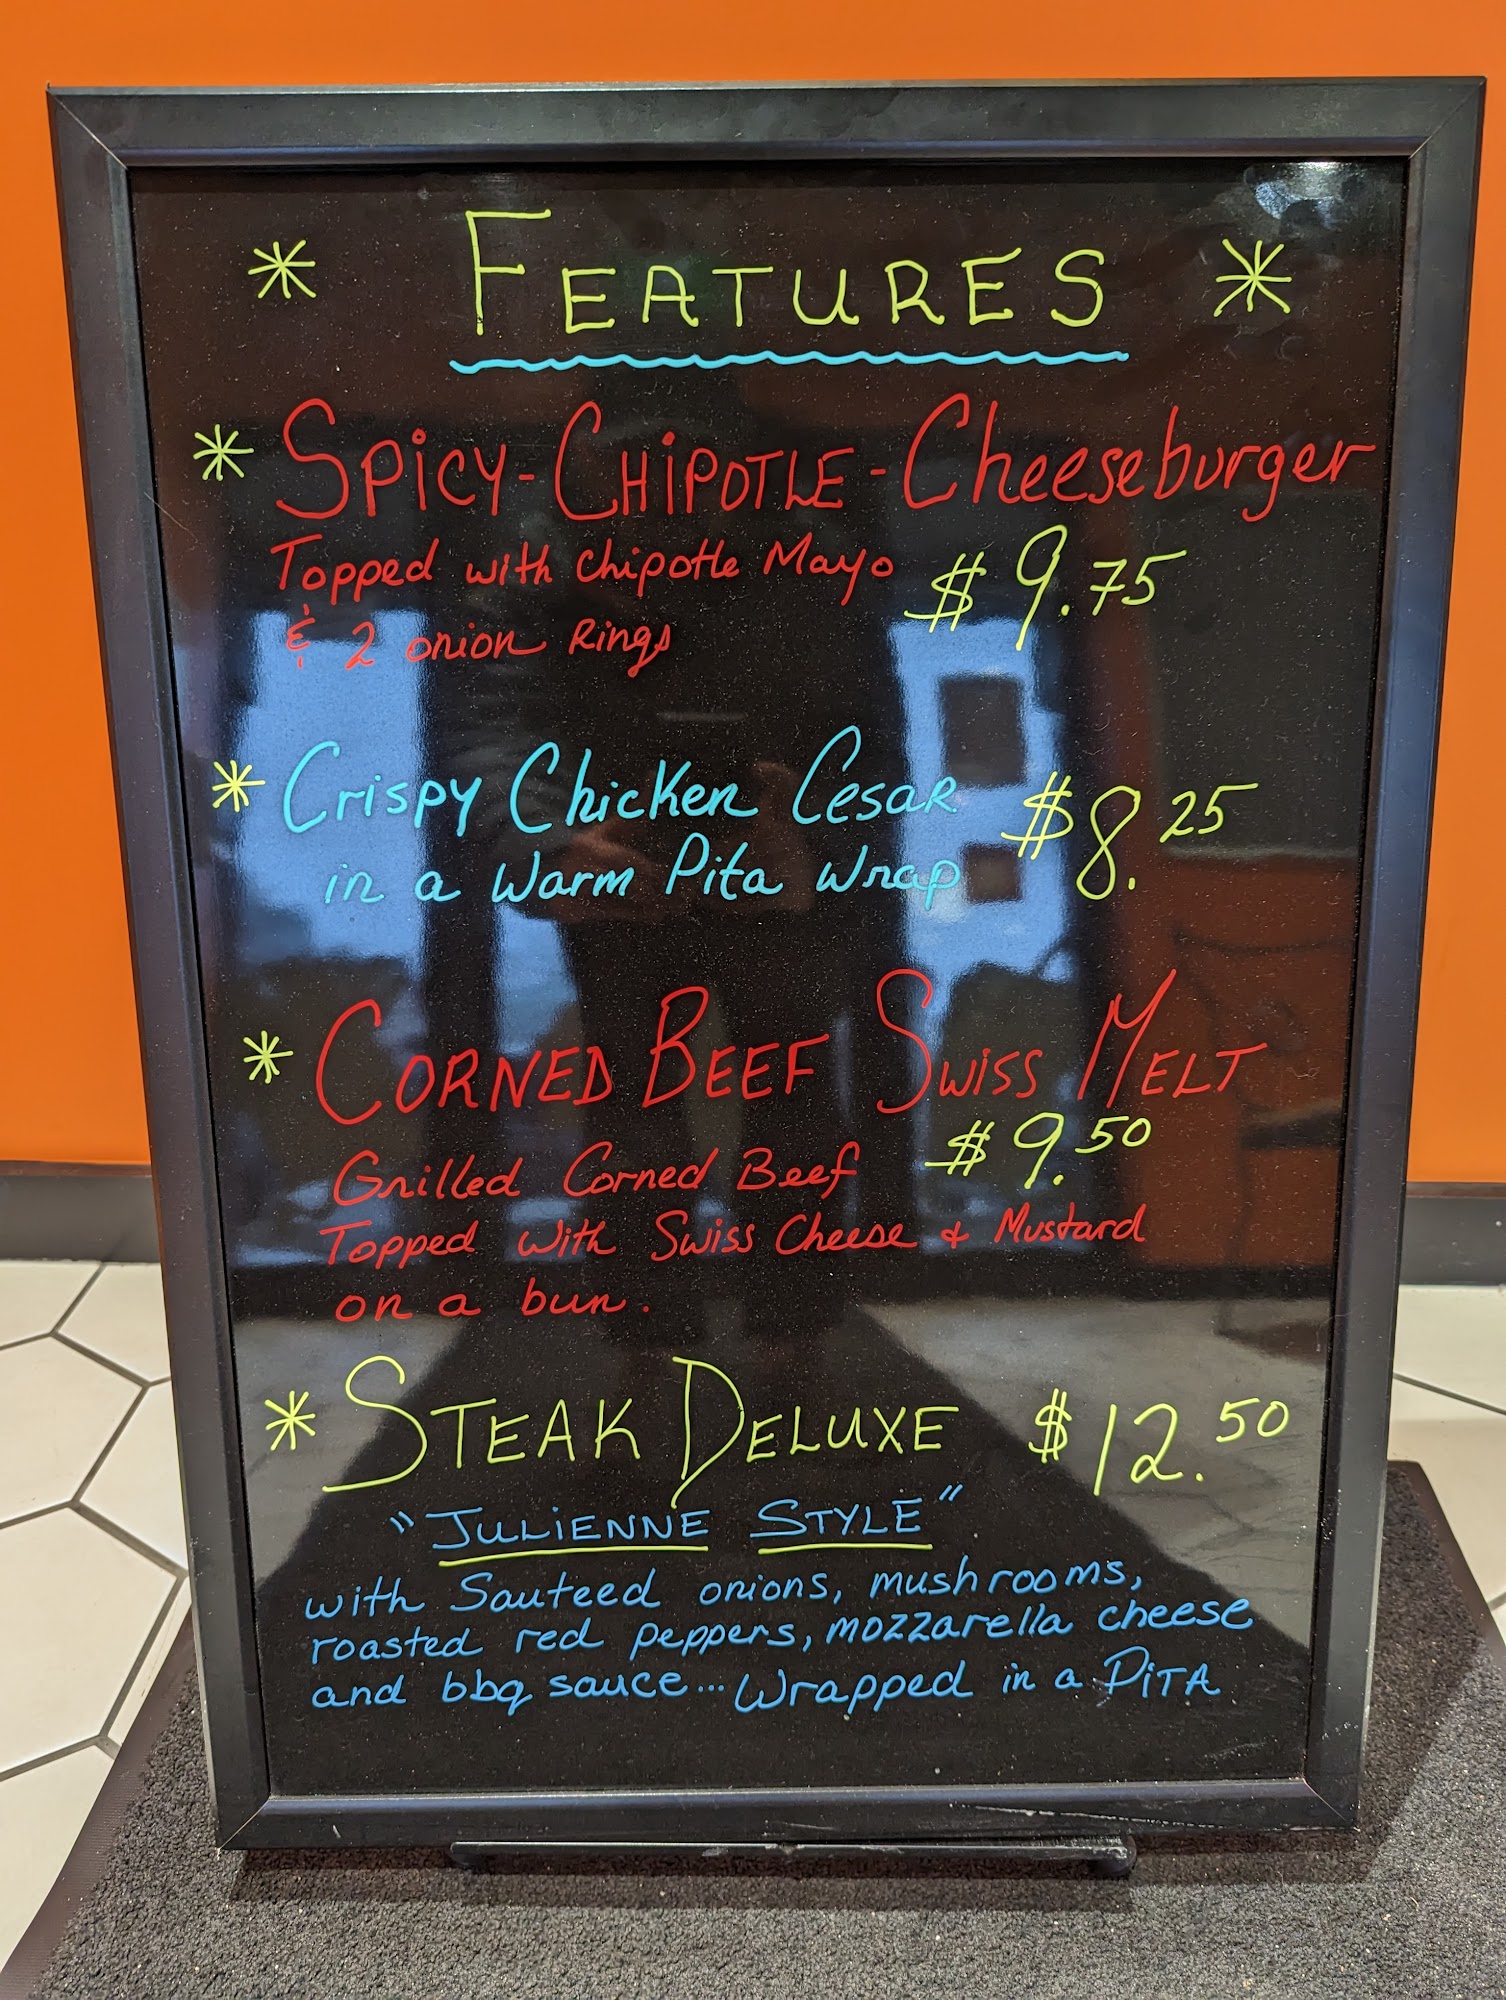 * FEATURES *
* SPICY-CHIPOTLE-Cheeseburger
Topped with Chipotle Mayo $9.75
& 2 onion Rings
* Crispy Chicken Cesar $8.25
in a Warm Pita Wrap
* CORNED BEEF SWISS MELT
$9.50
Grilled Corned Beef
Topped with Swiss Cheese & Mustard
on a bun.
* STEAK DELUXE $12.50
"JULIENNE STYLE"
with Sauteed onions, mushrooms,
roasted red peppers, mozzarella cheese
and bbq sauce... Wrapped in a PITA